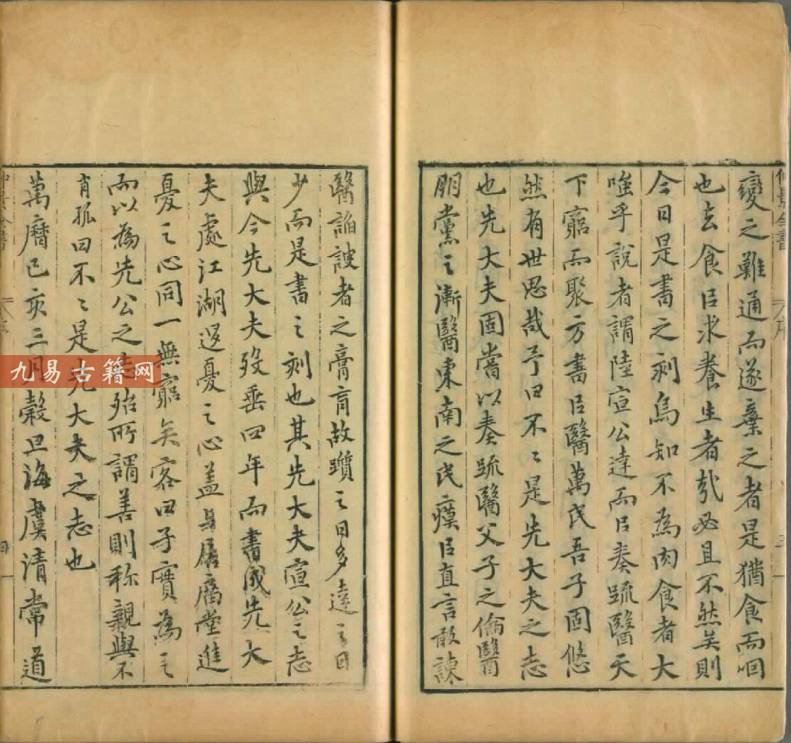 仲景全書
序
三
變之難通而遂棄之者是猶食而咽
也去食㠯求養生者哉必且不然矣則
今日是書之刻烏知不為肉食者大
嗤乎說者謂陸宣公達而㠯奏疏醫天
下窮而聚方書㠯醫萬民吾子固悠
然有世思哉予曰不〻是先大夫之志
也先大夫固嘗以奏疏醫父子之倫醫
朋黨之漸醫東南之民瘼㠯直言敢諫
醫諂諛者之膏肓故躓之日多達之日
少而是書之刻也其先大夫宣公之志
與今先大夫歿垂四年而書成先大
夫處江湖退憂之心盖與居廟堂進
憂之心同一無窮矣客曰子實為之
而以為先公之志殆所謂善則称親與不
肖孤曰不〻是先大夫之志也
萬曆己亥三月穀旦海虞清常道
仲景全書
序
四
九易古籍网